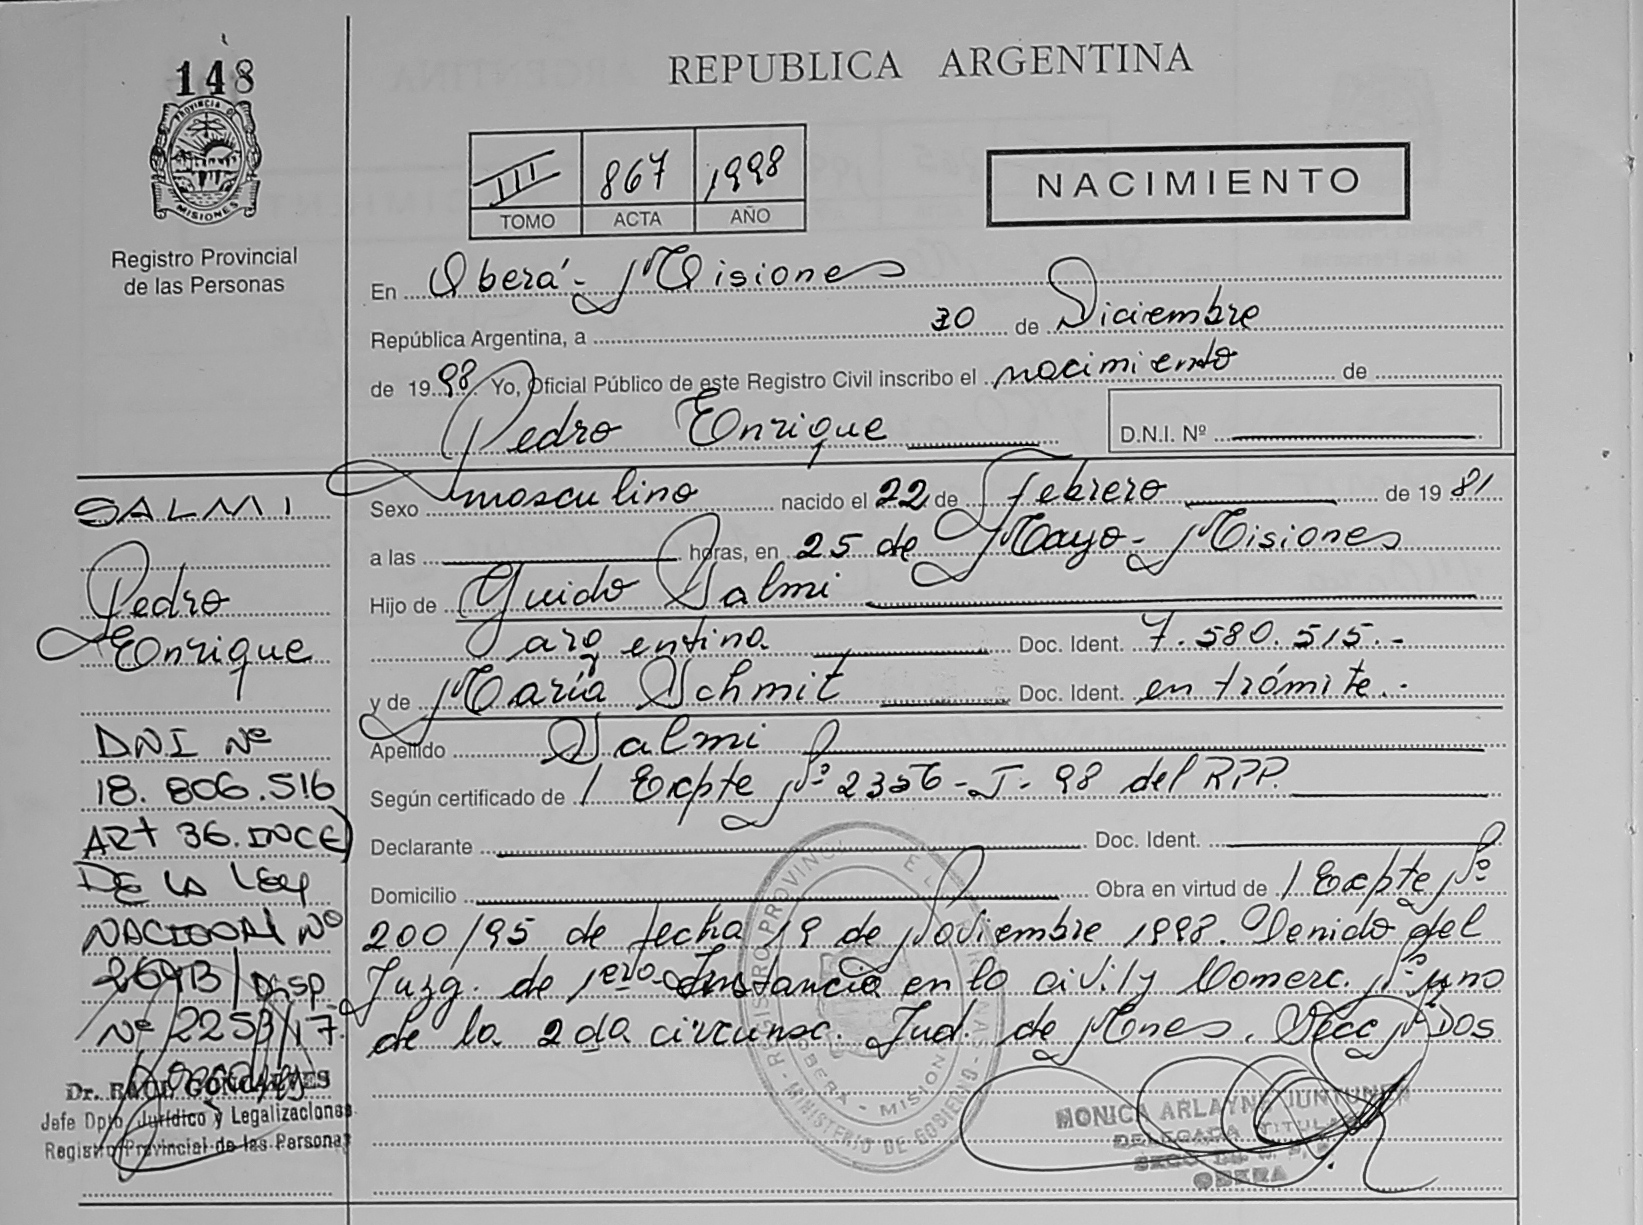 148
PROVINCIA DE
MISIONES
Registro Provincial
de las Personas
REPUBLICA ARGENTINA
III 867 1998
TOMO ACTA AÑO
NACIMIENTO
En Oberá - Misiones
República Argentina, a 30 de Diciembre
de 1998 Yo, Oficial Público de este Registro Civil inscribo el nacimiento de
Pedro Enrique D.N.I. Nº
Sexo masculino nacido el 22 de febrero de 1981
a las horas, en 25 de Mayo - Misiones
Hijo de Guido Salmi
argentina Doc. Ident. 7.580.515.-
y de María Schmit Doc. Ident. en trámite.-
Apellido Salmi
Según certificado de Expte Nº 2356-J-98 del RPP.
Declarante Doc. Ident.
Domicilio Obra en virtud de Expte Nº
200/95 de fecha 19 de Noviembre 1998. Venido del
Juzg. de 1era Instancia en lo civil y Comerc. Nº uno
de la 2da circunsc. Jud. de Mnes. Secc Nº Dos
SALMI
Pedro
Enrique
DNI Nº
18.806.516
ART 36. INC C)
DE LA LEY
NACIONAL Nº
26413/DISP
Nº 2253/17.
Dr. RAUL GONCALVES
Jefe Dpto. Jurídico y Legalizaciones
Registro Provincial de las Personas
MINISTERIO DE GOBIERNO
OBERA - MISIONES
MONICA ARLAYNE JUNTUNEN
DELEGADA TITULAR
OBERA